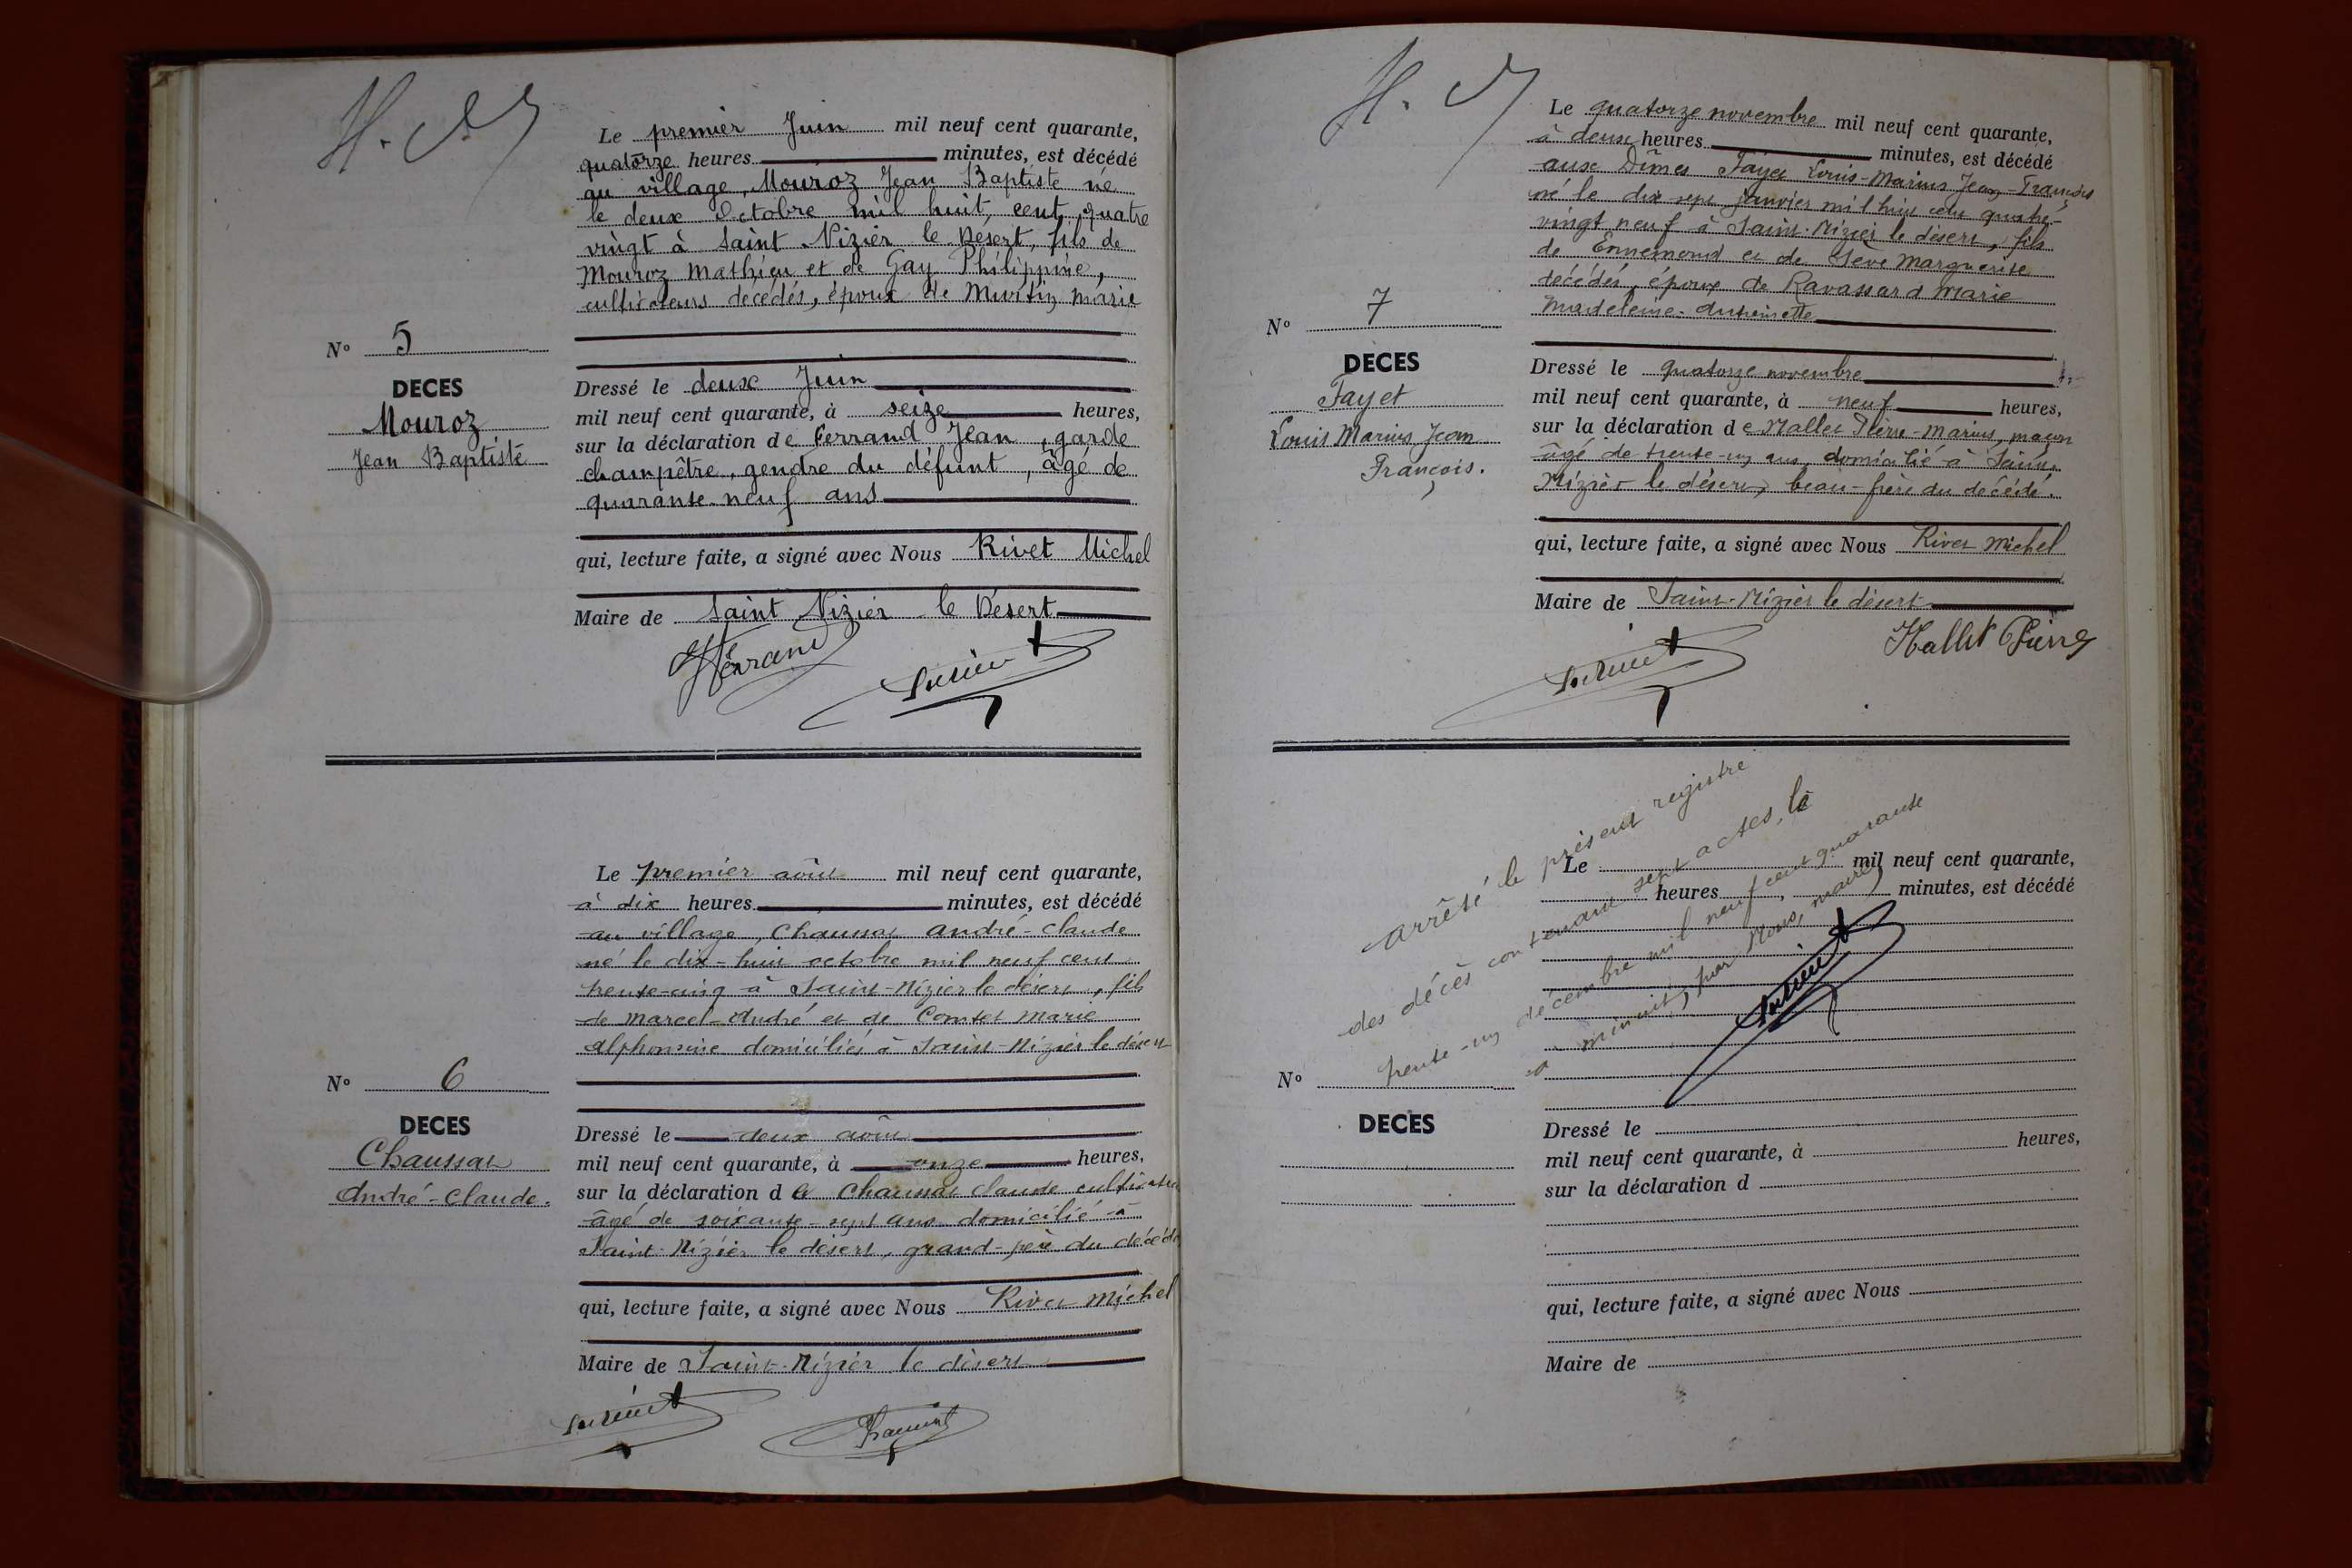 Le premier Juin mil neuf cent quarante,
quatorze heures minutes, est décédé
au village, Mouroz Jean Baptiste né
le deux Octobre mil huit cent quatre
vingt à Saint Nizier le Désert, fils de
Mouroz Mathieu et de Gay Philippine,
cultivateurs décédés, époux de Murtin Marie
N° 5
DECES
Mouroz
Jean Baptiste
Dressé le deux Juin
mil neuf cent quarante, à seize heures,
sur la déclaration de Ferrand Jean, garde
champêtre, gendre du défunt, âgé de
quarante-neuf ans
qui, lecture faite, a signé avec Nous Rivet Michel
Maire de Saint Nizier le Désert
Ferrand
Le premier août mil neuf cent quarante,
à dix heures minutes, est décédé
au village, Chaussat André-Claude
né le dix-huit octobre mil neuf cent
trente-cinq à Saint-Nizier le désert, fils
de Marcel-André et de Comtet Marie
Alphonsine domiciliés à Saint-Nizier le désert
N° 6
DECES
Chaussat
André-Claude.
Dressé le deux août
mil neuf cent quarante, à onze heures,
sur la déclaration de Chaussat Claude cultivateur
âgé de soixante-sept ans domicilié à
Saint-Nizier le désert, grand-père du décédé
qui, lecture faite, a signé avec Nous Rivet Michel
Maire de Saint-Nizier le désert
Le quatorze novembre mil neuf cent quarante,
à deux heures minutes, est décédé
aux Dîmes Fayet Louis-Marius Jean-François
né le dix sept janvier mil huit cent quatre-
vingt neuf à Saint-Nizier le désert, fils
de Ennemond et de Sève Marguerite
décédés, époux de Ravassard Marie
Madeleine-Antoinette
N° 7
DECES
Fayet
Louis Marius Jean
François.
Dressé le quatorze novembre
mil neuf cent quarante, à neuf heures,
sur la déclaration de Mallet Pierre-Marius, maçon
âgé de trente-un ans, domicilié à Saint
Nizier le désert, beau-frère du décédé.
qui, lecture faite, a signé avec Nous Rivet Michel
Maire de Saint-Nizier le désert
Mallet Pierre
Arrêté le présent registre
des décès contenant sept actes, le
trente-un décembre mil neuf cent quarante
à minuit, par Nous, maire,
Le mil neuf cent quarante,
heures minutes, est décédé
N°
DECES
Dressé le
mil neuf cent quarante, à heures,
sur la déclaration d
qui, lecture faite, a signé avec Nous
Maire de